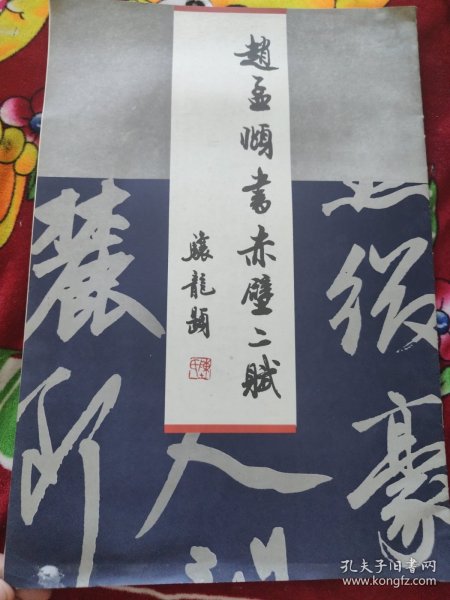 趙孟頫書赤壁二賦
驤龍題
豪
人
孔夫子旧书网
www.kongfz.com